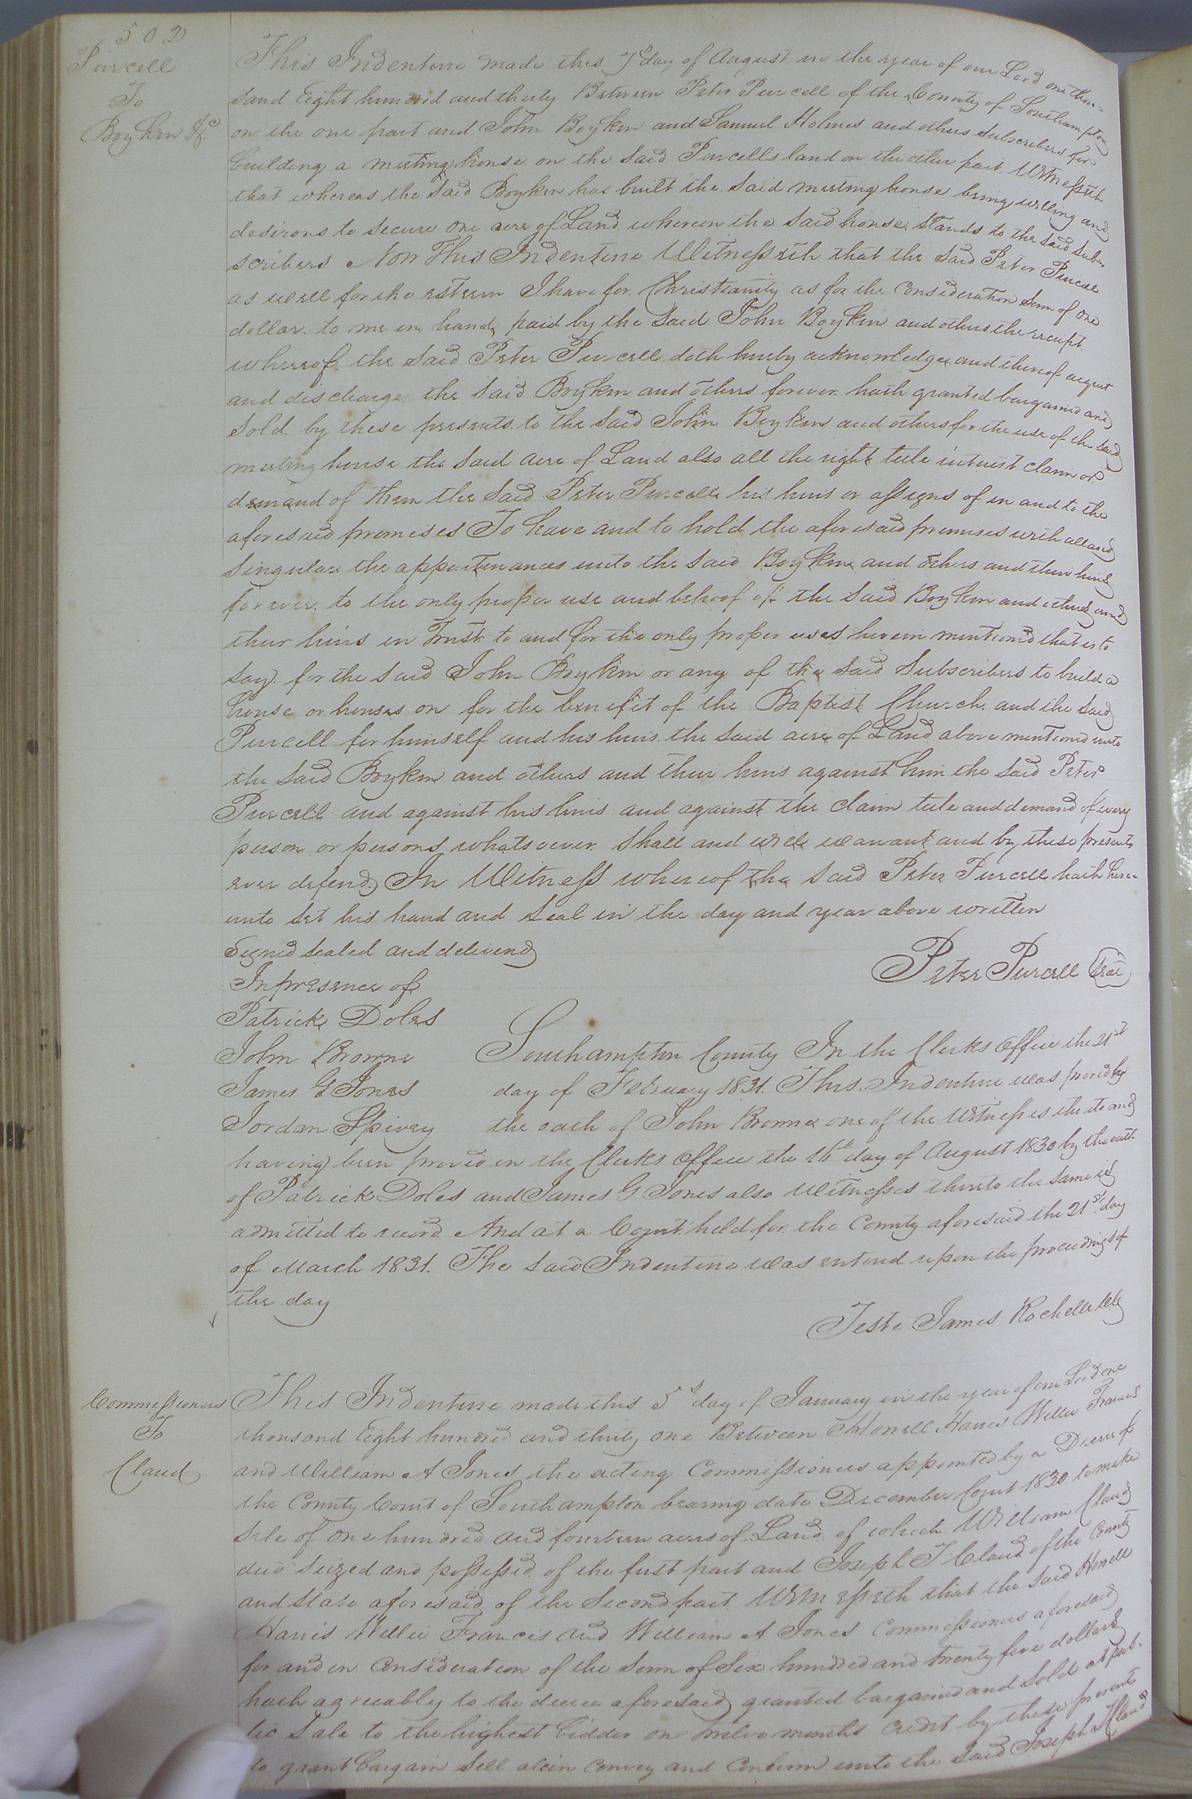 502
Purcell
To
Boykin &c
This Indenture made this 7th day of August in the year of our Lord one thou-
sand Eight hundred and thirty Between Peter Purcell of the County of Southampton
on the one part and John Boykin and Samuel Holmes and others Subscribers for
building a meeting house on the said Purcells land on the other part Witnesseth
that whereas the said Boykin has built the said meeting house being willing and
desirous to secure one acre of Land whereon the said house stands to the said Sub-
scribers Now This Indenture Witnesseth that the said Peter Purcell
as well for the esteem I have for Christianity as for the consideration sum of one
dollar to me in hand paid by the said John Boykin and others the receipt
whereof the said Peter Purcell doth hereby acknowledge and thereof acquit
and discharge the said Boykin and others forever hath granted bargained and
Sold by these presents to the said John Boykin and others for the use of the said
meeting house the said acre of Land also all the right title interest claim or
demand of them the said Peter Purcell his heirs or assigns of in and to the
aforesaid premises To have and to hold the aforesaid premises with all and
singular the appurtenances unto the said Boykin and others and their heirs
forever to the only proper use and behoof of the said Boykin and others and
their heirs in Trust to and for the only proper uses herein mentioned that is to
say for the said John Boykin or any of the said Subscribers to build a
house or houses on for the benefit of the Baptist Church and the said
Purcell for himself and his heirs the said acre of Land above mentioned unto
the said Boykin and others and their heirs against him the said Peter
Purcell and against his heirs and against the claim title and demand of every
person or persons whatsoever shall and will warrant and by these presents
ever defend In Witness whereof the said Peter Purcell hath here-
unto set his hand and seal in the day and year above written
Signed sealed and delivered
In presence of
Peter Purcell Seal
Patrick Doles
John Browne
James G Jones
Jordan Spivey
Southampton County In the Clerks Office the 21st
day of February 1831. This Indenture was proved by
the oath of John Browne one of the witnesses thereto and
having been proved in the Clerks Office the 16th day of August 1830 by the oath
of Patrick Doles and James G Jones also Witnesses thereto the same is
admitted to record And at a Court held for the County aforesaid the 21st day
of March 1831. The said Indenture was entered upon the proceedings of
the day
Teste James Rochelle Clk
Commissioners
To
Claud
This Indenture made this 5th day of January in the year of our Lord one
thousand Eight hundred and thirty one Between Howell Harris Willie Francis
and William A Jones the acting Commissioners appointed by a Decree of
the County Court of Southampton bearing date December Court 1830 to make
sale of one hundred and fourteen acres of Land of which William Claud
died seized and possessed of the first part and Joseph T Claud of the County
and State aforesaid of the Second part Witnesseth that the said Howell
Harris Willie Francis and William A Jones Commissioners aforesaid
for and in consideration of the sum of Six hundred and twenty five dollars
hath agreeably to the decree aforesaid granted bargained and sold at pub-
lic Sale to the highest bidder on twelve months credit by these present
to grant bargain Sell alien convey and confirm unto the said Joseph T Claud